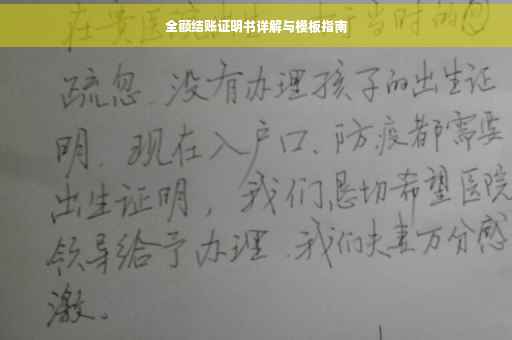 全额结账证明书详解与模板指南
在贵医院 当时的
疏忽.没有办理孩子的出生证
明.现在入户口、防疫都需要
出生证明，我们恳切希望医院
领导给予办理.我们夫妻万分感
激。